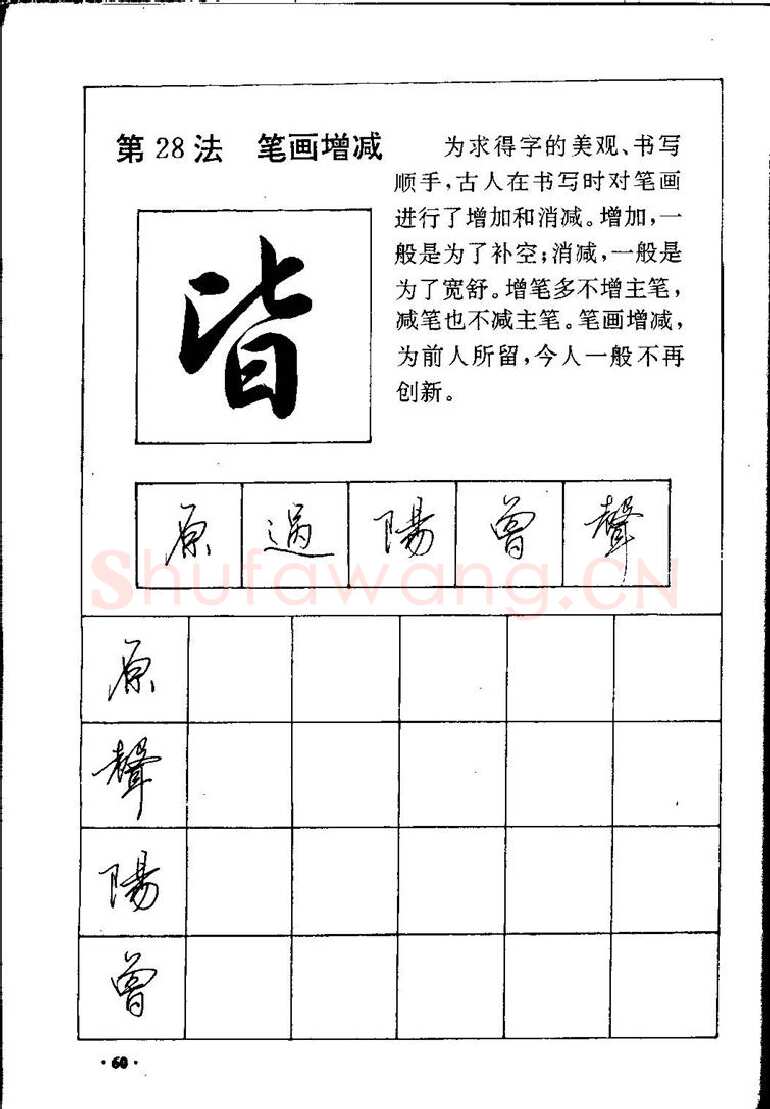 第28法 笔画增减
为求得字的美观、书写
顺手，古人在书写时对笔画
进行了增加和消减。增加，一
般是为了补空；消减，一般是
为了宽舒。增笔多不增主笔，
减笔也不减主笔。笔画增减，
为前人所留，今人一般不再
创新。
皆
原 過 陽 曾 聲
Shufawang.CN
原
聲
陽
曾
·60·